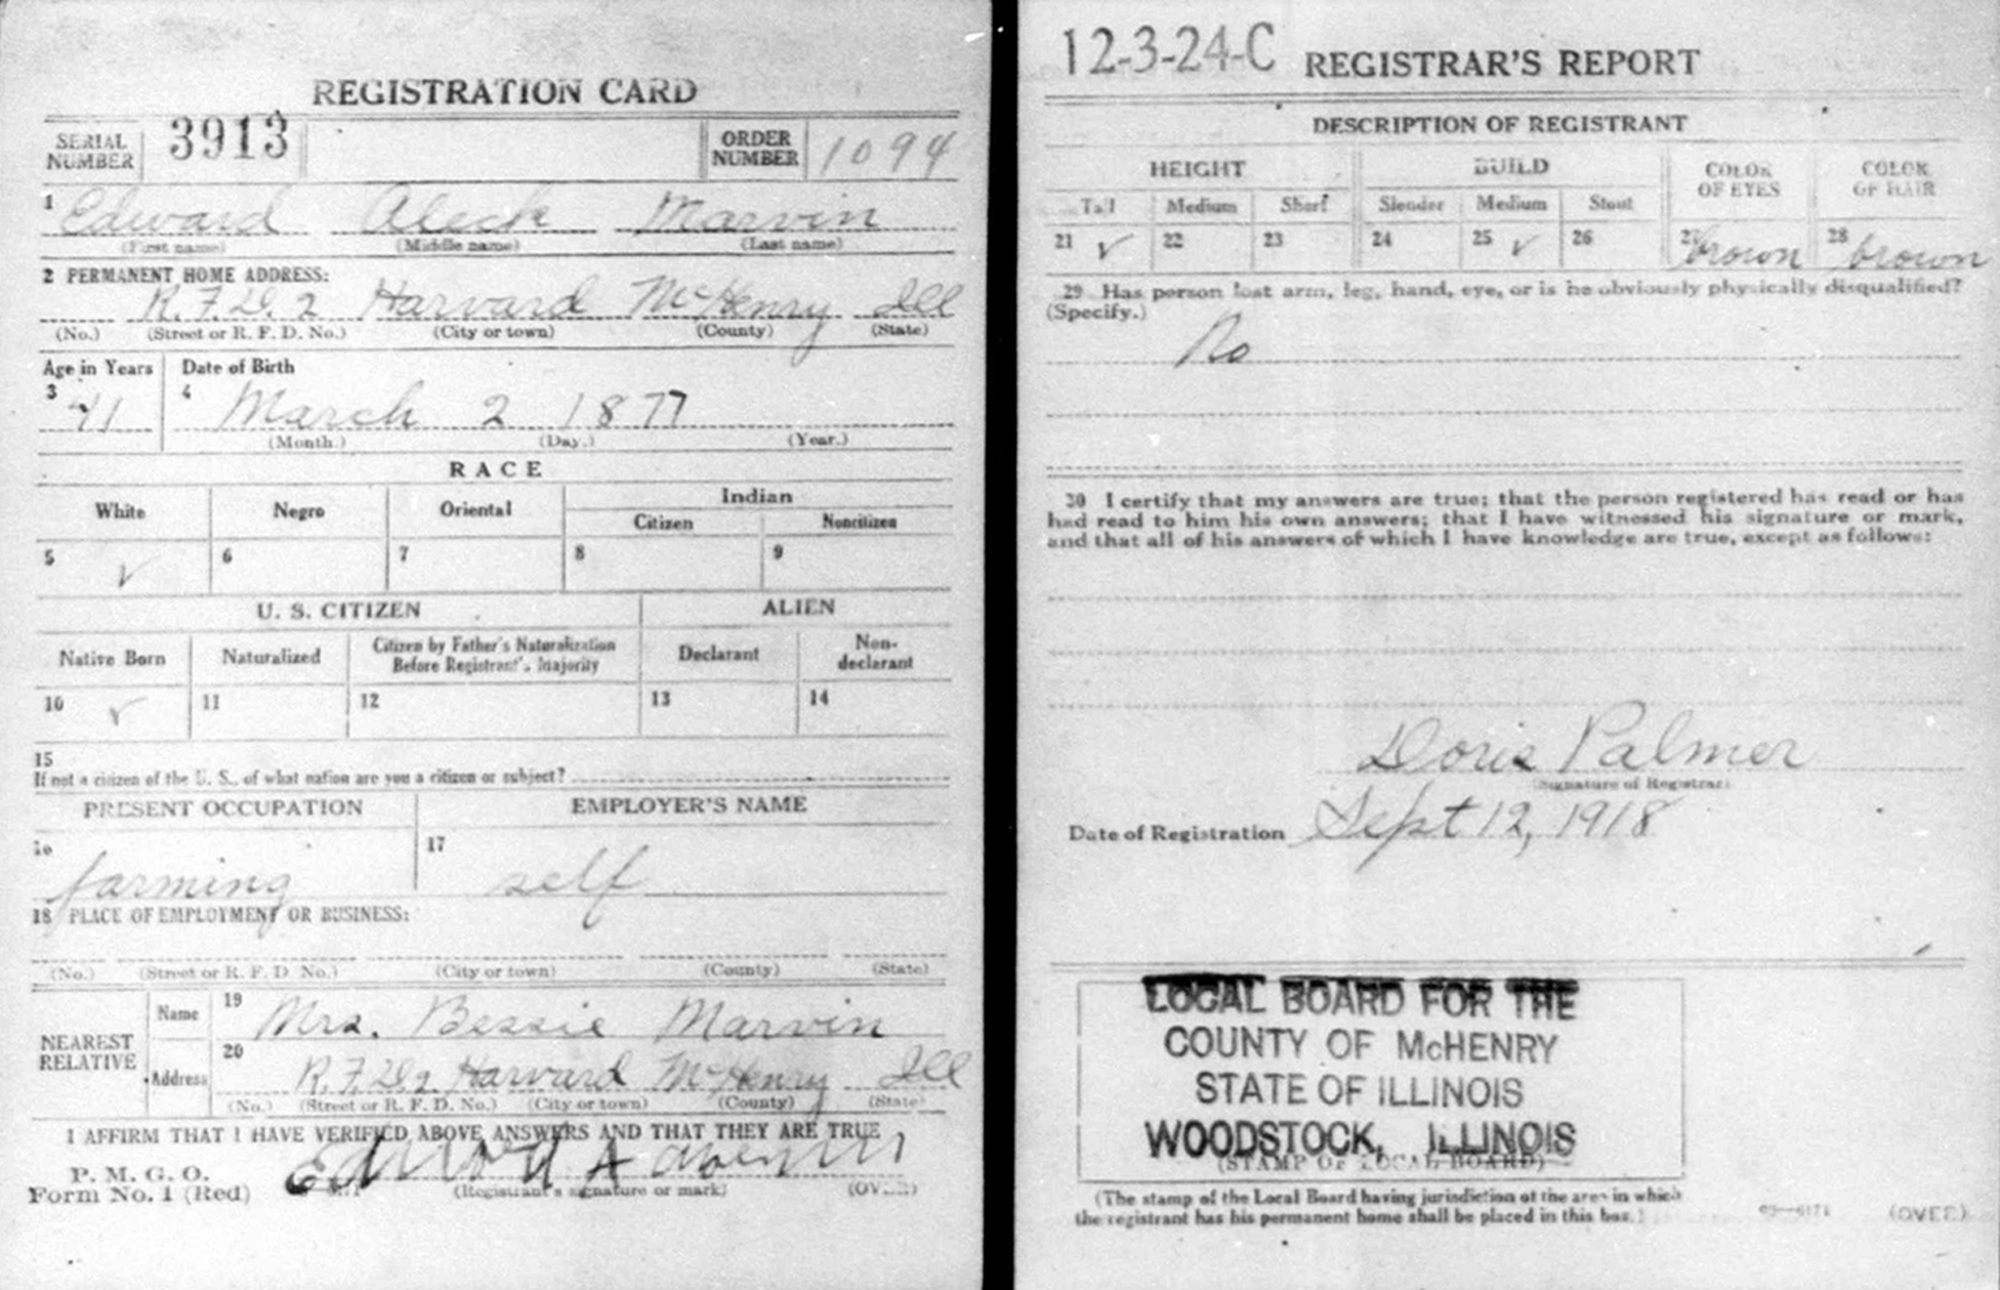 REGISTRATION CARD
SERIAL NUMBER 3913 ORDER NUMBER 1094
1 Edward Aleck Marvin
(First name) (Middle name) (Last name)
2 PERMANENT HOME ADDRESS:
R.F.D. 2 Harvard McHenry Ill
(No.) (Street or R. F. D. No.) (City or town) (County) (State)
Age in Years Date of Birth
3 41 4 March 2 1877
(Month.) (Day.) (Year.)
RACE
White Negro Oriental Indian
Citizen Noncitizen
5 ✓ 6 7 8 9
U. S. CITIZEN ALIEN
Native Born Naturalized Citizen by Father's Naturalization Before Registrant's Majority Declarant Non-declarant
10 ✓ 11 12 13 14
15
If not a citizen of the U. S., of what nation are you a citizen or subject?
PRESENT OCCUPATION EMPLOYER'S NAME
16 17
farming self
18 PLACE OF EMPLOYMENT OR BUSINESS:
(No.) (Street or R. F. D. No.) (City or town) (County) (State)
NEAREST RELATIVE
Name 19 Mrs. Bessie Marvin
Address 20 R.F.D 2 Harvard McHenry Ill
(No.) (Street or R. F. D. No.) (City or town) (County) (State)
I AFFIRM THAT I HAVE VERIFIED ABOVE ANSWERS AND THAT THEY ARE TRUE
P. M. G. O.
Form No. 1 (Red) Edward A
(Registrant's signature or mark) (OVER)
12-3-24-C REGISTRAR'S REPORT
DESCRIPTION OF REGISTRANT
HEIGHT BUILD COLOR OF EYES COLOR OF HAIR
Tall Medium Short Slender Medium Stout
21 ✓ 22 23 24 25 ✓ 26 27 brown 28 brown
29 Has person lost arm, leg, hand, eye, or is he obviously physically disqualified?
(Specify.)
No
30 I certify that my answers are true; that the person registered has read or has
had read to him his own answers; that I have witnessed his signature or mark,
and that all of his answers of which I have knowledge are true, except as follows:
Doris Palmer
(Signature of Registrar)
Date of Registration Sept 12, 1918
LOCAL BOARD FOR THE
COUNTY OF McHENRY
STATE OF ILLINOIS
WOODSTOCK, ILLINOIS
(STAMP OF LOCAL BOARD)
(The stamp of the Local Board having jurisdiction of the area in which
the registrant has his permanent home shall be placed in this box.)
(OVER)